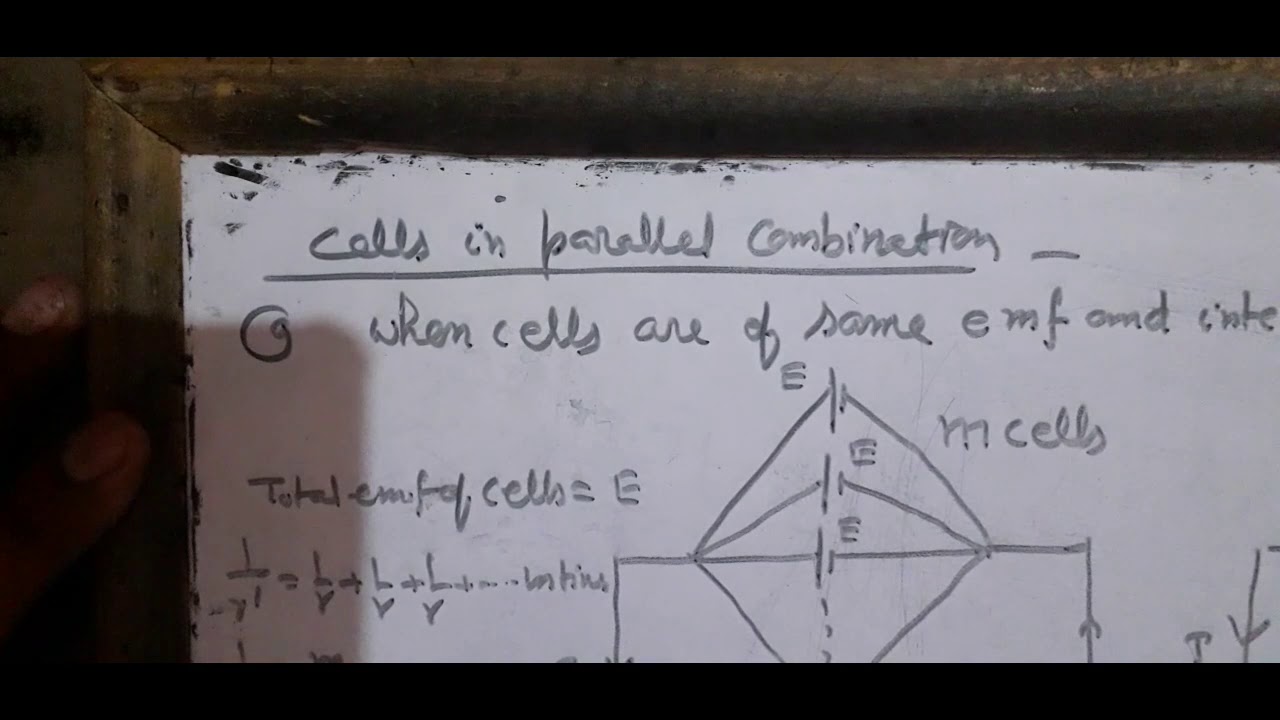 Cells in parallel Combination –
when cells are of same emf and inte
E
m cells
E
Total emf of cells = E
E
1/r' = 1/r + 1/r + 1/r + ....
m
I